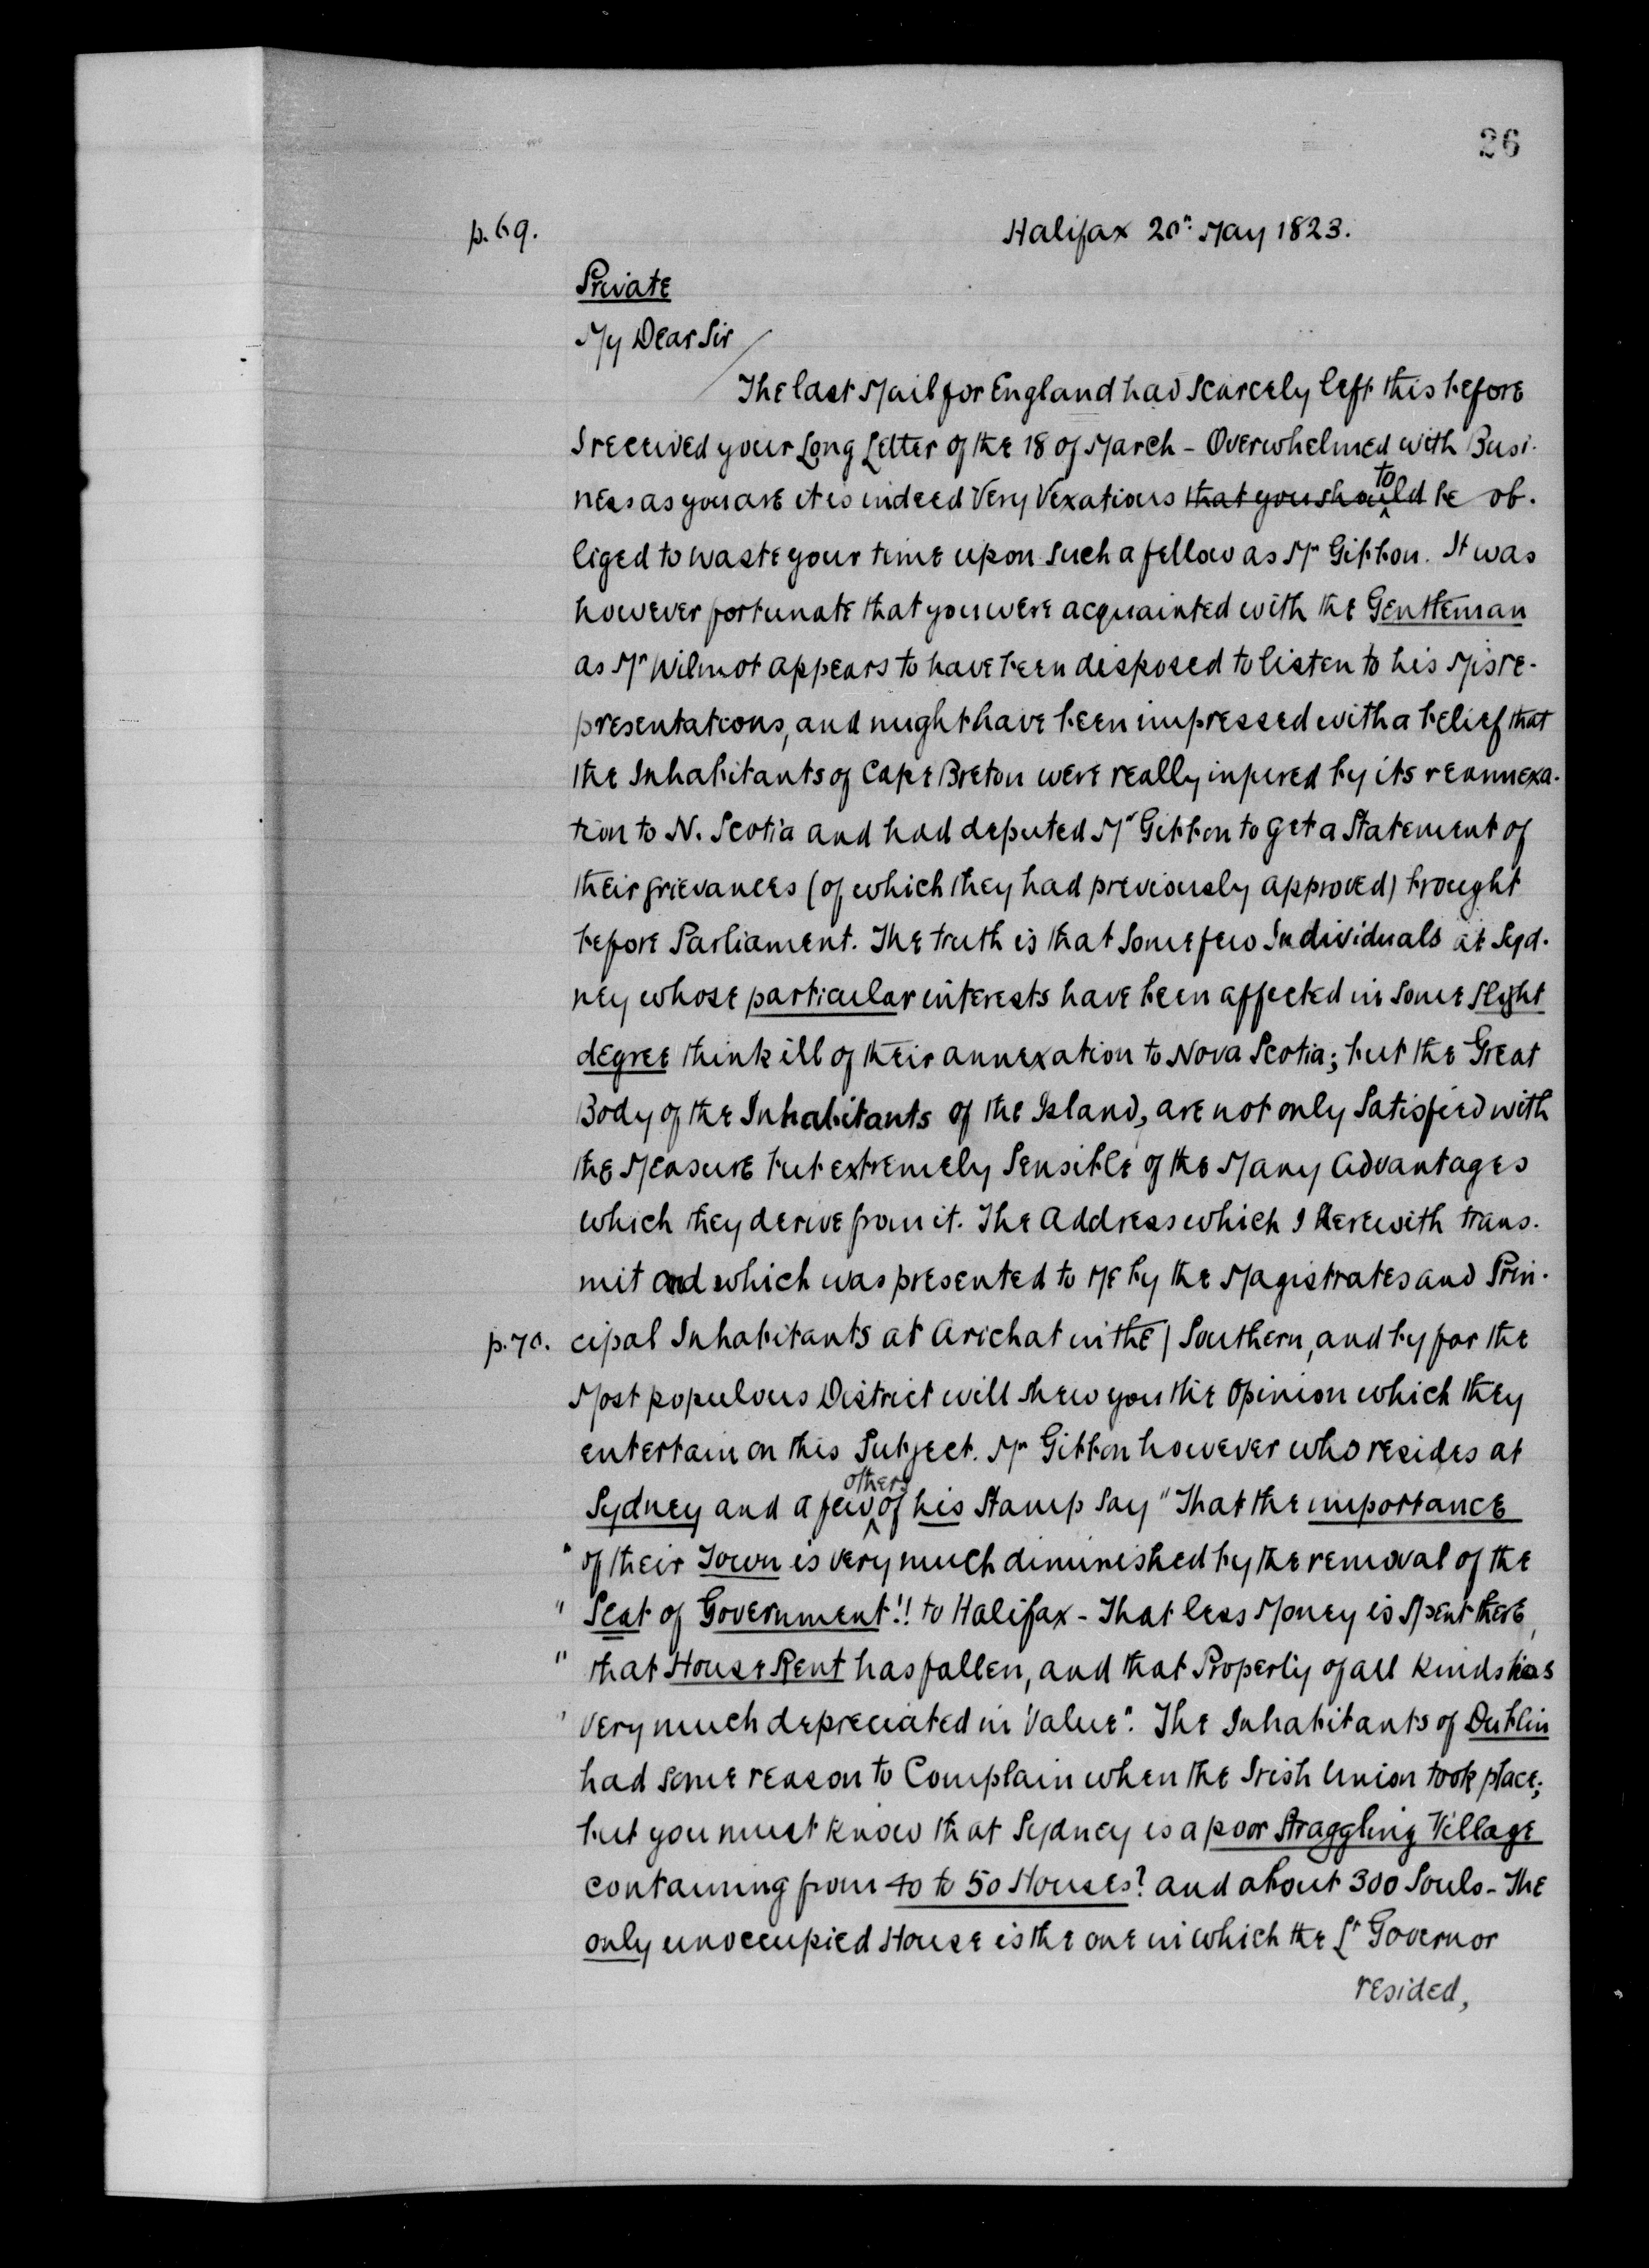 26
p. 69. Halifax 20th May 1823.
Private
My Dear Sir
The last Mail for England had scarcely left this before
I received your Long Letter of the 18 of March - Overwhelmed with Busi-
ness as you are it is indeed Very Vexatious ~~that you should~~ to be ob-
liged to waste your time upon such a fellow as Mr Gibbon. It was
however fortunate that you were acquainted with the Gentleman
as Mr Wilmot appears to have been disposed to listen to his Misre-
presentations, and might have been impressed with a belief that
the Inhabitants of Cape Breton were really injured by its reannexa-
tion to N. Scotia and had deputed Mr Gibbon to get a Statement of
their grievances (of which they had previously approved) brought
before Parliament. The truth is that some few Individuals at Syd-
ney whose particular interests have been affected in some slight
degree think ill of their annexation to Nova Scotia; but the Great
Body of the Inhabitants of the Island, are not only Satisfied with
the Measure but extremely Sensible of the Many Advantages
which they derive from it. The Address which I herewith trans-
mit and which was presented to Me by the Magistrates and Prin-
p. 70. cipal Inhabitants at Arichat in the / Southern, and by far the
Most populous District will shew you the Opinion which they
entertain on this Subject. Mr Gibbon however who resides at
Sydney and a few others of his Stamp say "That the importance
" of their Town is very much diminished by the removal of the
" Seat of Government!! to Halifax - That less Money is Spent there,
" that House Rent has fallen, and that Property of all kinds has
' very much depreciated in Value". The Inhabitants of Dublin
had some reason to Complain when the Irish Union took place;
but you must know that Sydney is a poor Straggling Village
containing from 40 to 50 Houses? and about 300 Souls - The
only unoccupied House is the one in which the Lt Governor
resided,